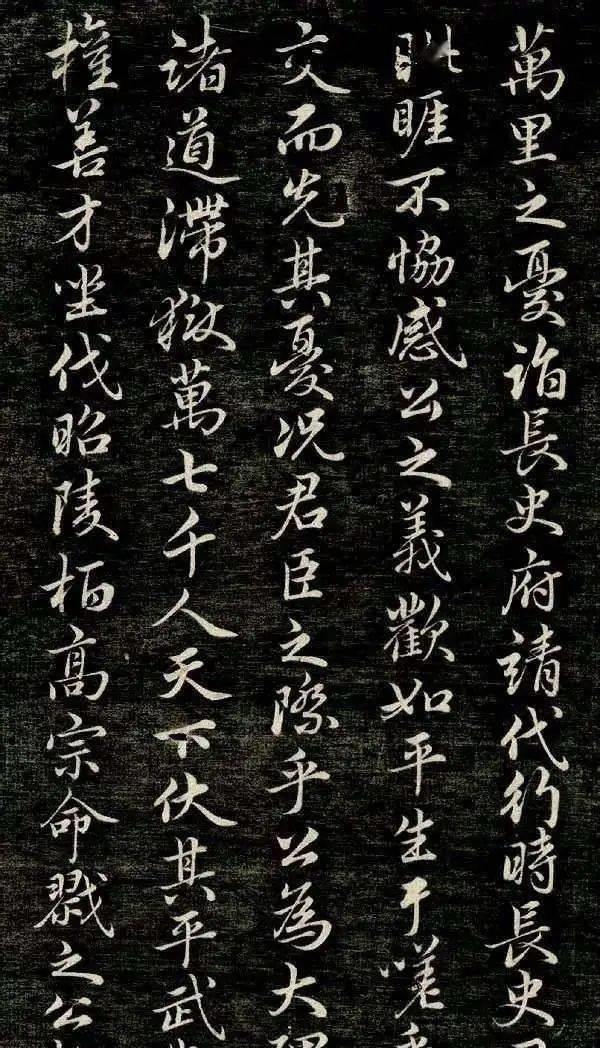 萬里之憂詣長史府請代行時長史
眦睢不協感公之義歡如平生于嗟
交而先其憂况君臣之際乎公為大理
諸道滯獄萬七千人天下伏其平武
權善才坐伐昭陵柏髙宗命戮之公